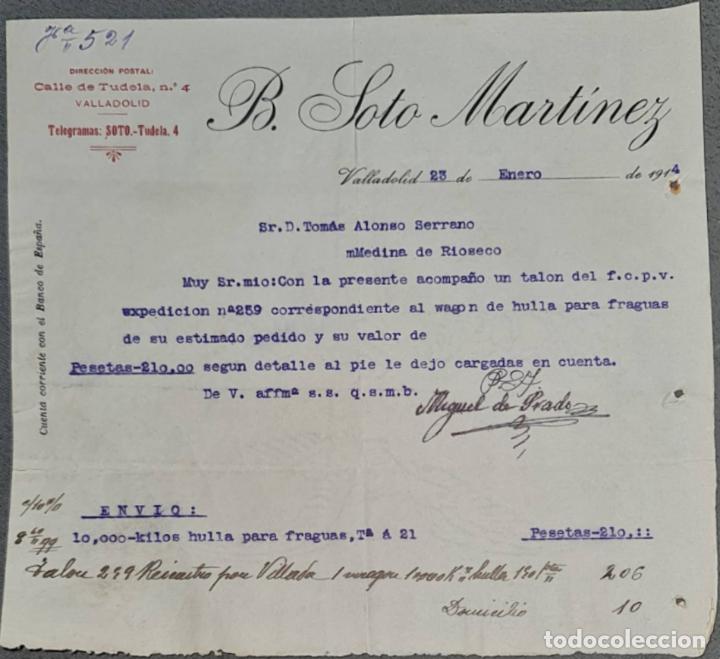 521
DIRECCIÓN POSTAL:
Calle de Tudela, n.º 4
VALLADOLID
Telegramas: SOTO.-Tudela, 4
B. Soto Martínez
Valladolid 23 de Enero de 1914
Cuenta corriente con el Banco de España.
Sr.D.Tomás Alonso Serrano
mMedina de Rioseco
Muy Sr.mio:Con la presente acompaño un talon del f.c.p.v.
expedicion nª259 correspondiente al wagon de hulla para fraguas
de su estimado pedido y su valor de
Pesetas-210,00 segun detalle al pie le dejo cargadas en cuenta.
De V. affmª s.s. q.s.m.b.
Miguel de Prado
ENVIO:
10,000-kilos hulla para fraguas,Tª á 21 Pesetas-210,::
259 por Villada 1 10000 K hulla 206
Domicilio 10
todocoleccion.net